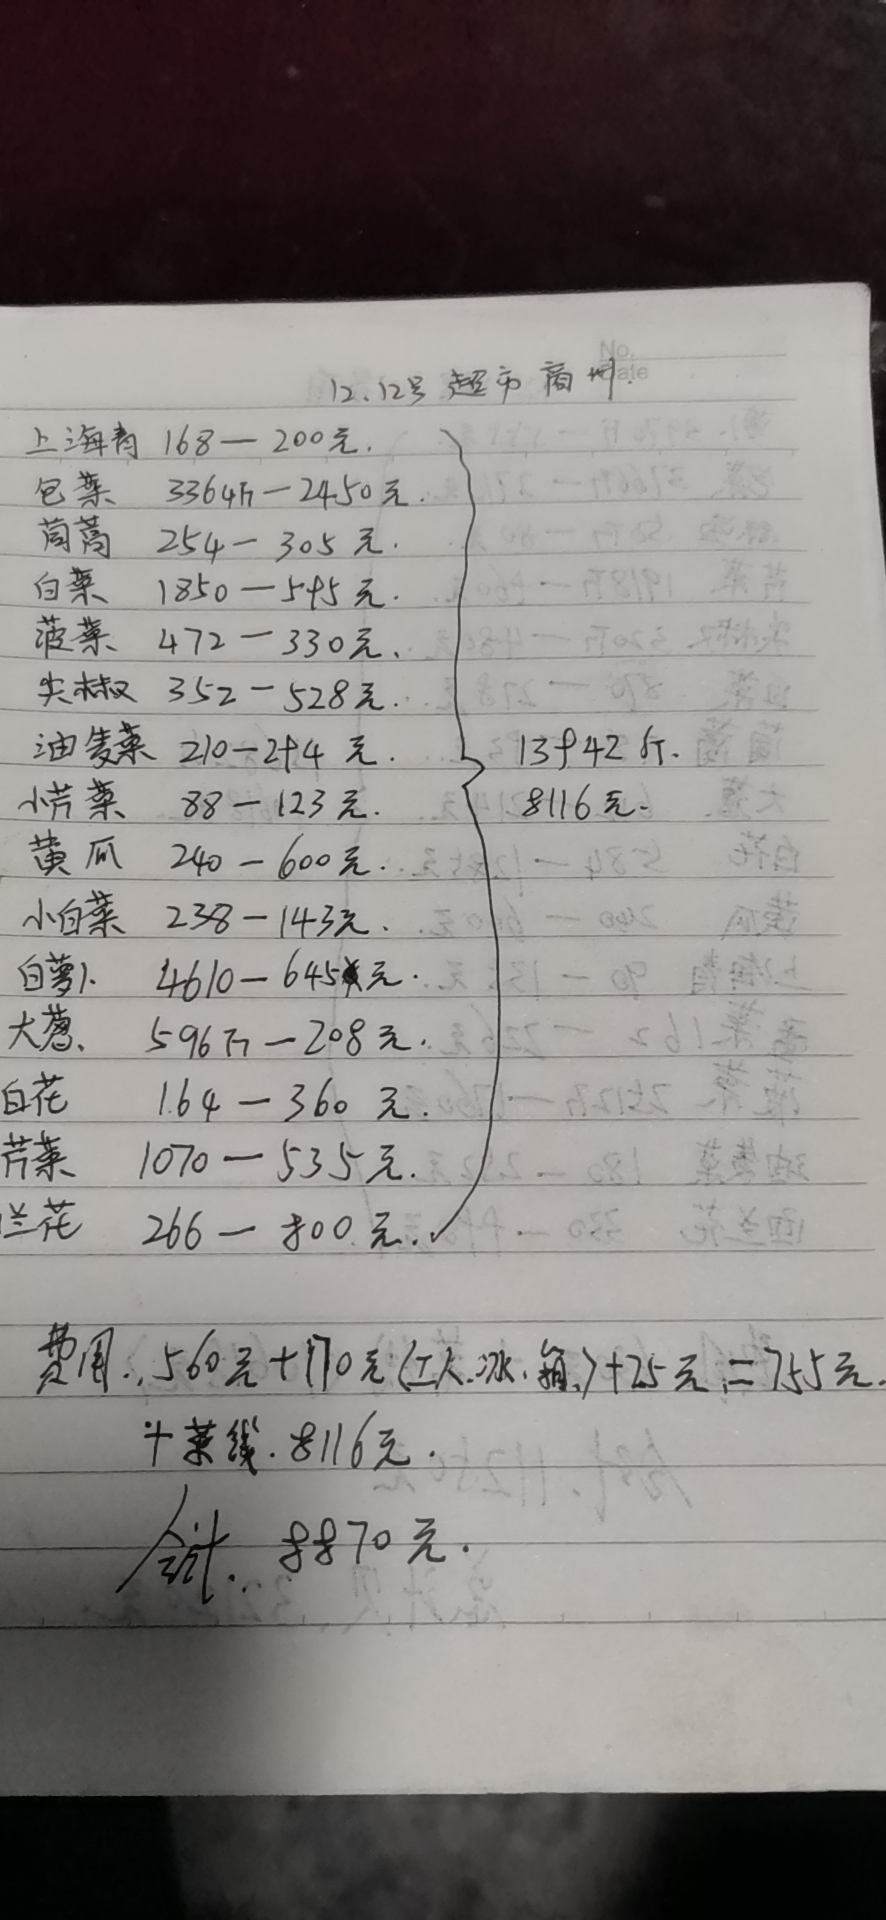 No.
Date
12.12号 超市 商州.
上海青 168—200元.
包菜 3364斤—2450元.
茼蒿 254—305元.
白菜 1850—545元.
菠菜 472—330元.
尖椒 352—528元.
油麦菜 210—294元.
小芹菜 88—123元.
黄瓜 240—600元.
小白菜 238—143元.
白萝卜 4610—645元.
大葱. 596斤—208元.
白花 164—360元.
芹菜 1070—535元.
兰花 266—800元.
13942斤.
8116元.
费用. 560元+170元(工人.冰.箱.)+25元=755元.
+菜钱. 8116元.
合计. 8870元.